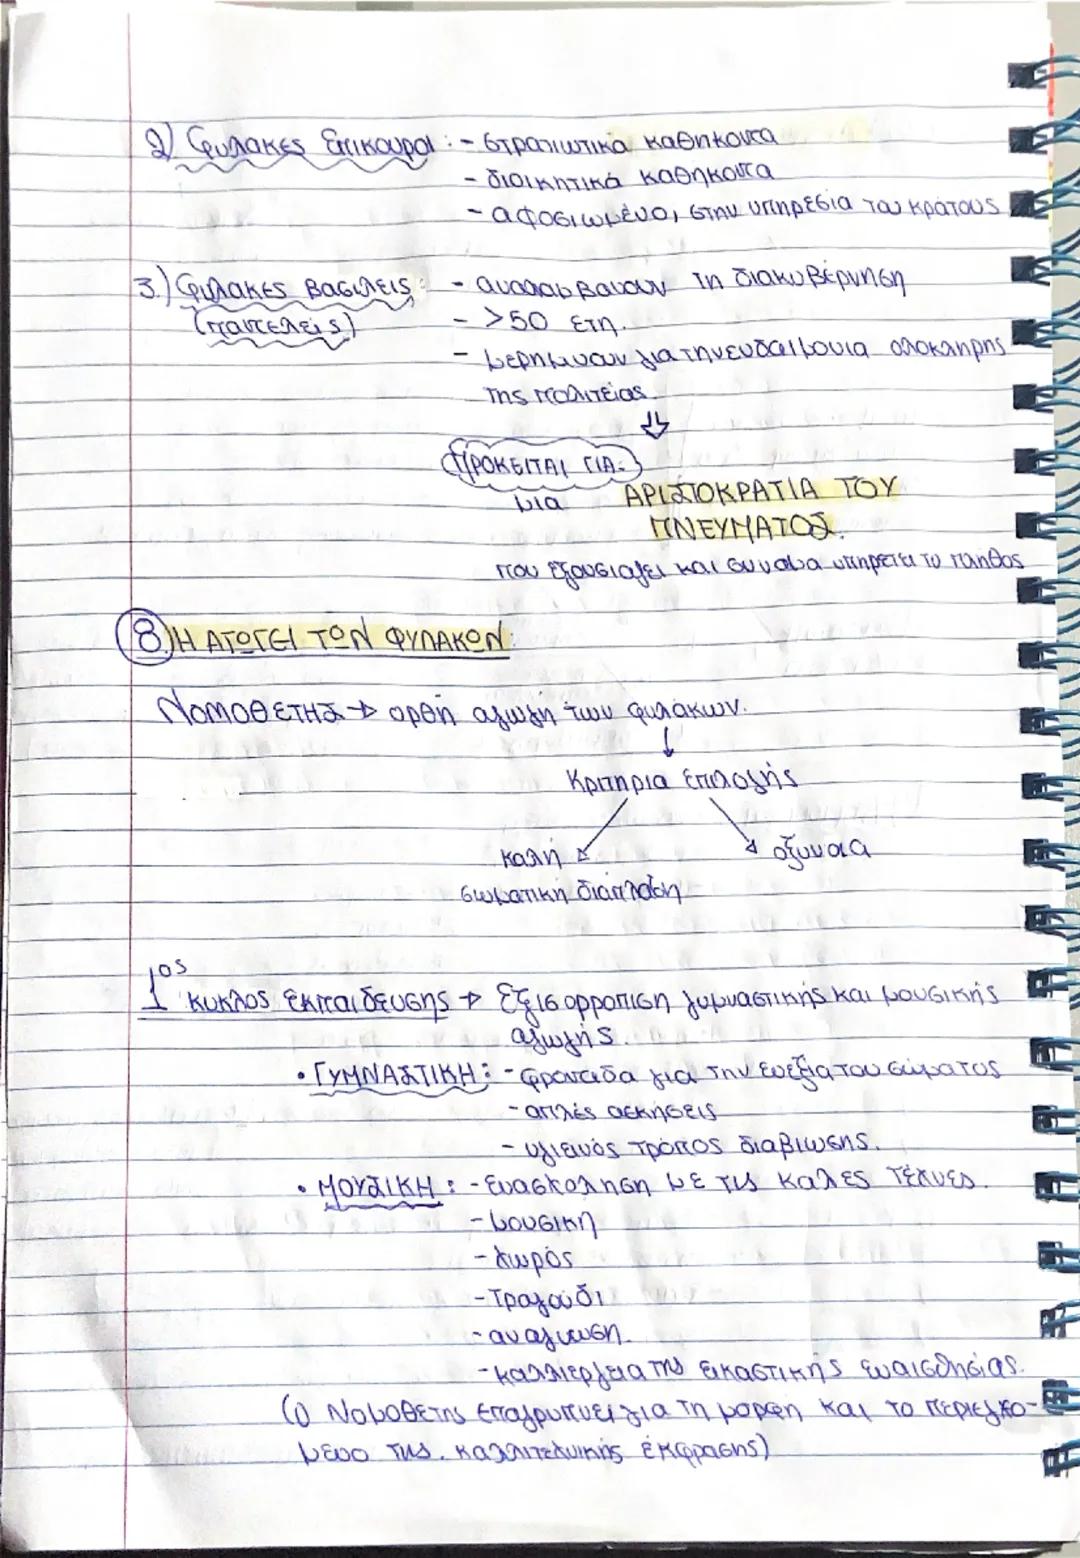 2) Φύλακες Επίκουροι: - στρατιωτικά καθήκοντα
- διοικητικά καθήκοντα
- αφοσιωμένοι στην υπηρεσία του κράτους
3.) Φύλακες Βασιλείς: - αναλαμβάνουν τη διακυβέρνηση
(παντελείς) - >50 ετη.
- μεριμνουν για την ευδαιμονια ολοκληρης
της πολιτείας.
⇩
ΠΡΟΚΕΙΤΑΙ ΓΙΑ:
μια ΑΡΙΣΤΟΚΡΑΤΙΑ ΤΟΥ
ΠΝΕΥΜΑΤΟΣ.
που εξουσιαζει και συναμα υπηρετει το πληθος
8.) Η ΑΓΩΓΕΙ ΤΩΝ ΦΥΛΑΚΩΝ:
ΝΟΜΟΘΕΤΗΣ → ορθή αγωγή των φυλάκων.
↓
Κριτηρια επιλογής
καλή οξυνοια
σωματική διάπλαση
1ος κυκλος εκπαιδευσης → Εξισορροπιση γυμναστικής και μουσικής
αγωγής.
• ΓΥΜΝΑΣΤΙΚΗ: - φροντιδα για την ευεξια του σώματος
- απλές ασκήσεις
- υγιεινός τρόπος διαβιωσης.
• ΜΟΥΣΙΚΗ: - Ενασχοληση με τις καλες τέχνες.
- μουσική
- χωρός
- Τραγούδι
- αναγνωση.
- καλλιεργεια της εικαστικής ευαισθησίας.
(ο Νομοθετης επαγρυπνει για τη μορφη και το περιεχο-
μενο της. καλλιτεχνικής έκφρασης)